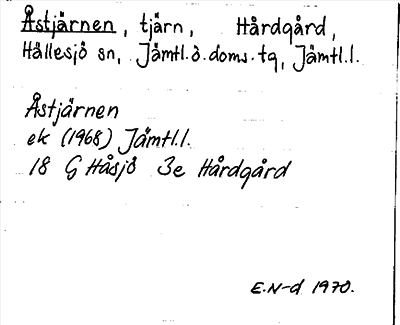 Åstjärnen, tjärn, Hårdgård,
Hällesjö sn, Jämtl.ö.doms.tg, Jämtl.l.
Åstjärnen
ek (1968) Jämtl.l.
18 G Håsjö 3e Hårdgård
E.N-d 1970.